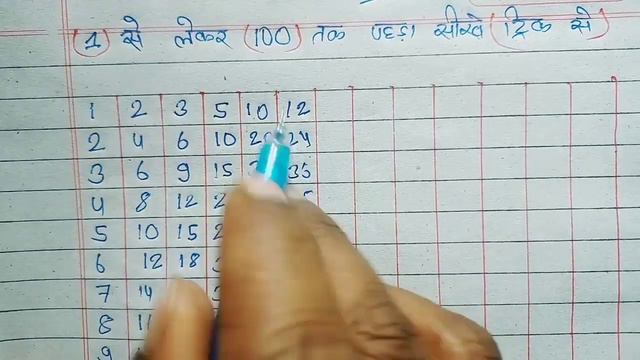 (1) से लेकर (100) तक पहाड़ा सीखे (ट्रिक से)
1 2 3 5 10 12
2 4 6 10 20 24
3 6 9 15 35
4 8 12
5 10 15
6 12 18
7 14
8
9